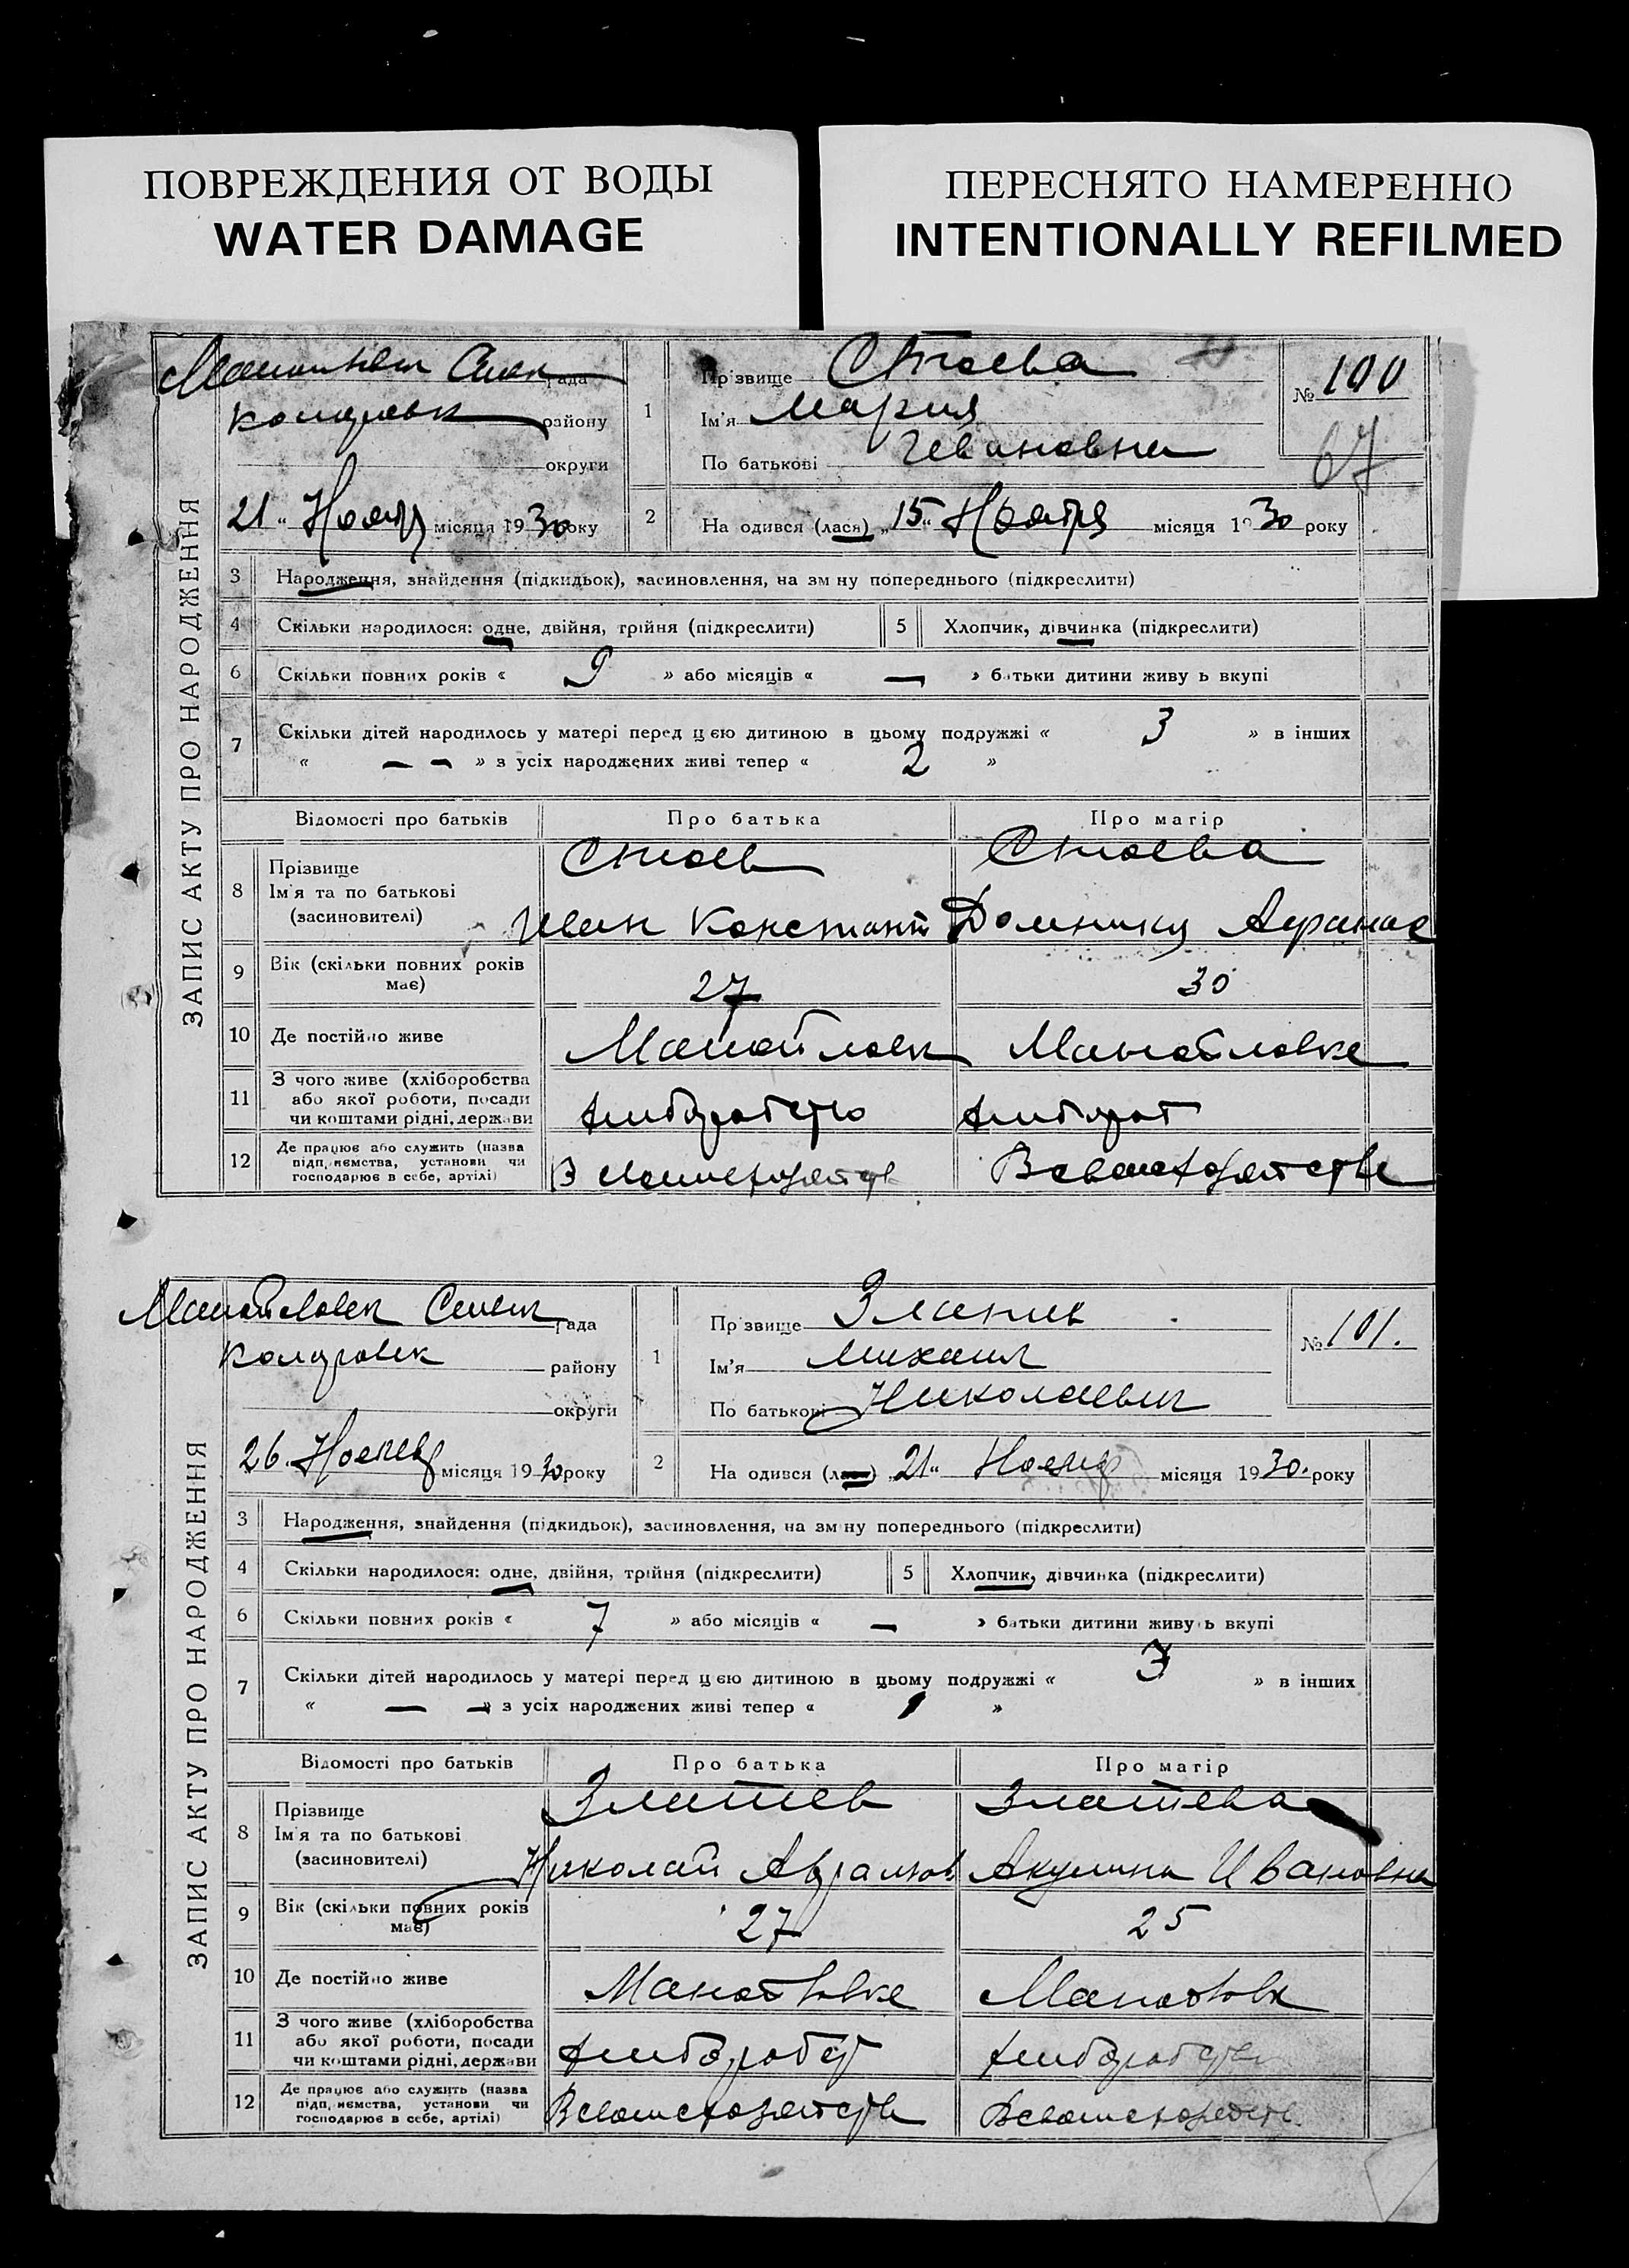 ПОВРЕЖДЕНИЯ ОТ ВОДЫ
WATER DAMAGE
ПЕРЕСНЯТО НАМЕРЕННО
INTENTIONALLY REFILMED
ЗАПИС АКТУ ПРО НАРОДЖЕННЯ
рада
району
округи
21 " Ноя місяця 1930 року
1
Прізвище Стоева
Ім'я Мария
По батькові Ивановна
№ 100
67
2
На одився (лася) „15" Ноября місяця 1930 року
3 Народження, знайдення (підкидьок), засиновлення, на зм ну попереднього (підкреслити)
4 Скільки народилося: одне, двійня, трійня (підкреслити)
5 Хлопчик, дівчинка (підкреслити)
6 Скільки повних років « 9 » або місяців « — » батьки дитини живу ь вкупі
7 Скільки дітей народилось у матері перед цією дитиною в цьому подружжі « 3 » в інших
« — — » з усіх народжених живі тепер « 2 »
Відомості про батьків Про батька Про матір
8 Прізвище
Ім'я та по батькові
(засиновителі)
Стоев Стоева
Иван Констант Домникия Афанас
9 Вік (скільки повних років
має) 27 30
10 Де постійно живе Манойловк Манойловке
11 З чого живе (хліборобства
або якої роботи, посади
чи коштами рідні, держави
12 Де працює або служить (назва
підприємства, установи чи
господарює в себе, артілі)
ЗАПИС АКТУ ПРО НАРОДЖЕННЯ
Манойловск Сельск рада
Коларовск району
округи
26. місяця 1930 року
1
Прізвище Златев
Ім'я Михаил
По батькові Николаевич
№ 101.
2
На одився (лася) „21" Ноя місяця 1930. року
3 Народження, знайдення (підкидьок), засиновлення, на зм ну попереднього (підкреслити)
4 Скільки народилося: одне, двійня, трійня (підкреслити)
5 Хлопчик, дівчинка (підкреслити)
6 Скільки повних років « 7 » або місяців « — » батьки дитини живу ь вкупі
7 Скільки дітей народилось у матері перед цією дитиною в цьому подружжі « 3 » в інших
« — — » з усіх народжених живі тепер « 1 »
Відомості про батьків Про батька Про матір
8 Прізвище
Ім'я та по батькові
(засиновителі)
Златев Златева
Николай Аврамов Акулина Ивановна
9 Вік (скільки повних років
має) 27 25
10 Де постійно живе
11 З чого живе (хліборобства
або якої роботи, посади
чи коштами рідні, держави
12 Де працює або служить (назва
підприємства, установи чи
господарює в себе, артілі)